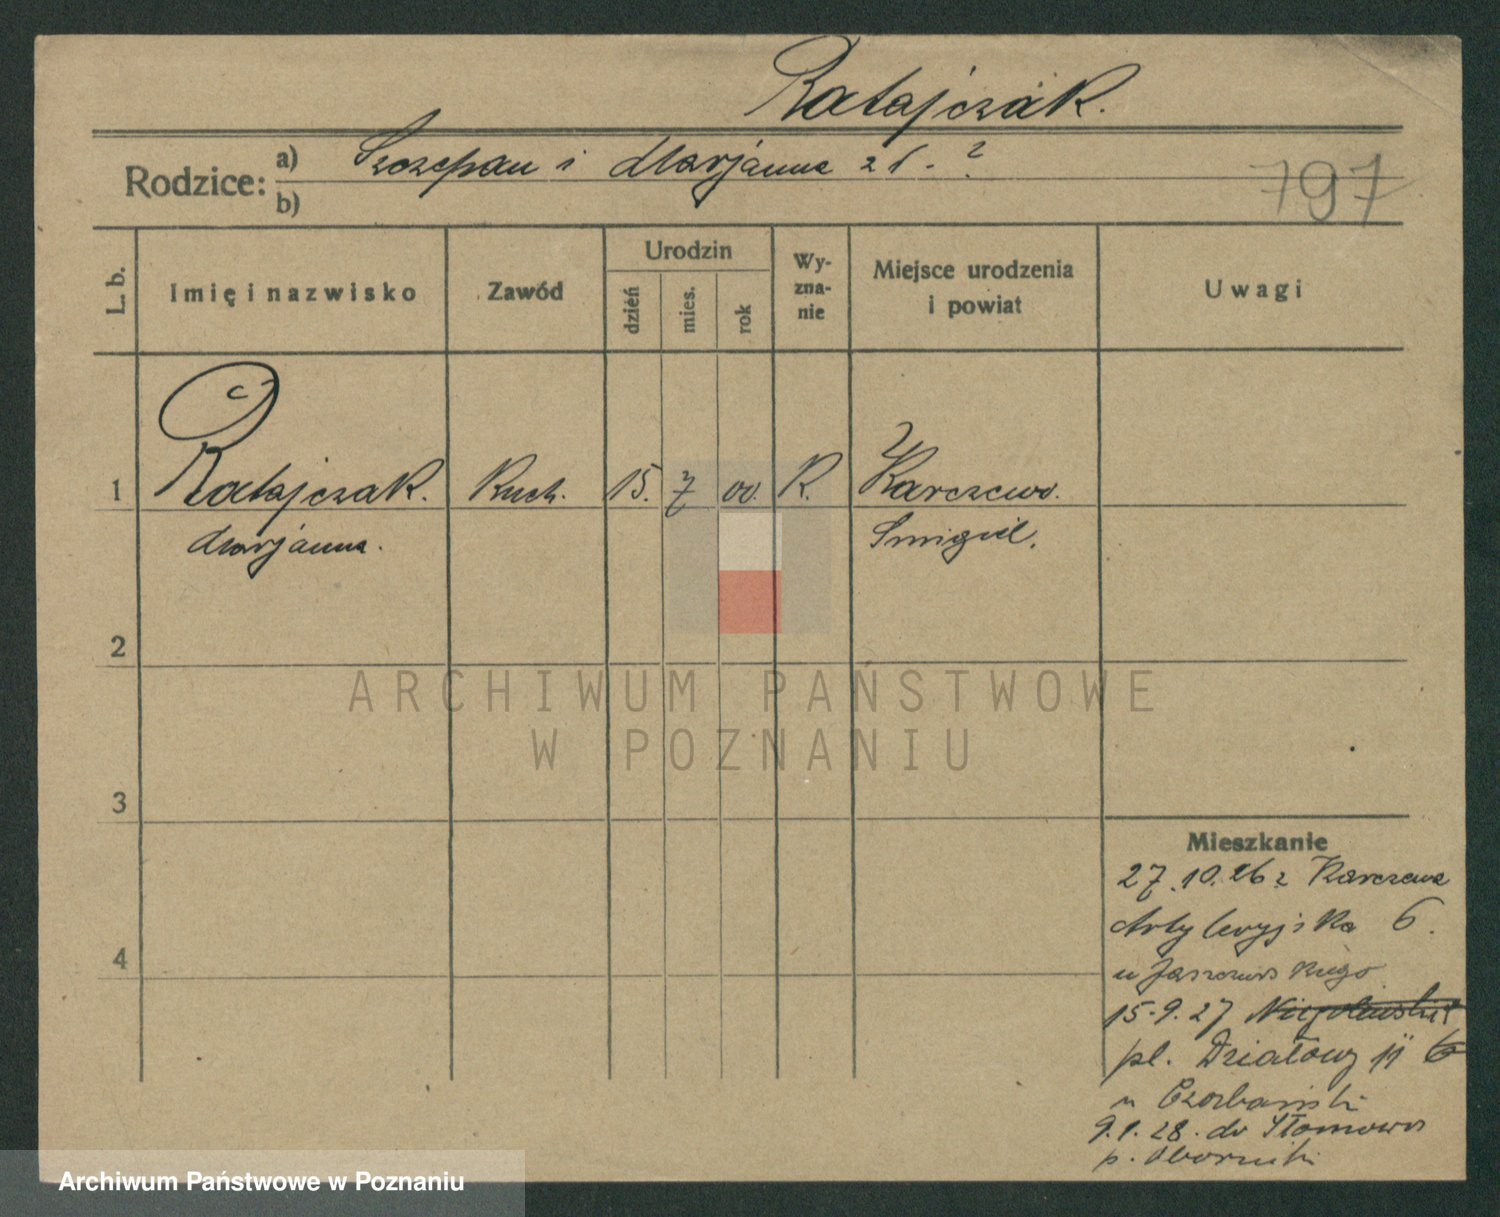 Ratajczak.
Rodzice: a) Szczepan i Marjanna zd. ?
b)
797
L. b.
Imię i nazwisko
Zawód
Urodzin
dzień
mies.
rok
Wy-
zna-
nie
Miejsce urodzenia
i powiat
Uwagi
1 Ratajczak. Kuch. 15. 7 00. R. Karczewo.
Marjanna. Śmigiel.
2
3
4
Mieszkanie
27.10.26 z Karczewa
Artyleryjska 6.
u Jaszczewskiego
15.9.27
pl. Działowy 11
u
9.1.28. do Słomowo
p. Oborniki
ARCHIWUM PAŃSTWOWE
W POZNANIU
Archiwum Państwowe w Poznaniu